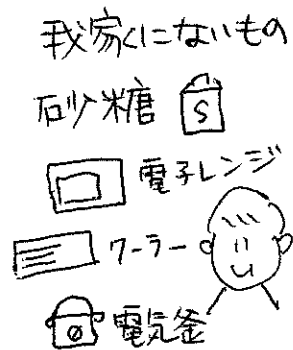 我家にないもの
砂糖 S
電子レンジ
クーラー
電気釜